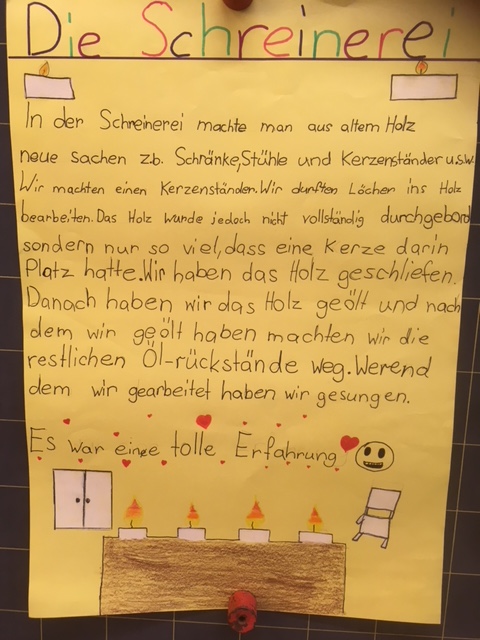 Die Schreinerei
In der Schreinerei machte man aus altem Holz
neue sachen z.b. Schränke,Stühle und Kerzenständer u.s.w.
Wir machten einen Kerzenständer.Wir durften Löcher ins Holz
bearbeiten.Das Holz wurde jedoch nicht vollständig durchgebord
sondern nur so viel,dass eine Kerze darin
Platz hatte.Wir haben das Holz geschliefen.
Danach haben wir das Holz geölt und nach
dem wir geölt haben machten wir die
restlichen Öl-rückstände weg.Werend
dem wir gearbeitet haben wir gesungen.
Es war eine tolle Erfahrung